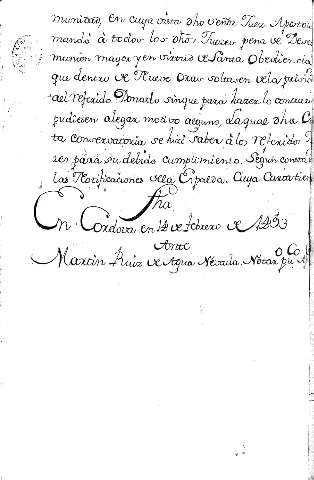 munidad, en cuya virtud dho Señor Juez Apostol
mandó à todos los dhos Jueces pena de Descomunion
munion mayor y en virtud de Santa Obediencia
que dentro de Nueve Oras soltasen dela prision
del referido Donado sinque para hazerlo
pudiesen alegar motivo alguno, ala qual dha
ta conservatoria se hizó saber à los referidos
res para su debido cumplimiento. Segun consta
las Notificaciones dela Espalda. Cuya Carta
fha
En Cordova en 14 de febrero de 1453
Ante
Martin Ruiz de Agua Nevada. Notar. pu. Ap